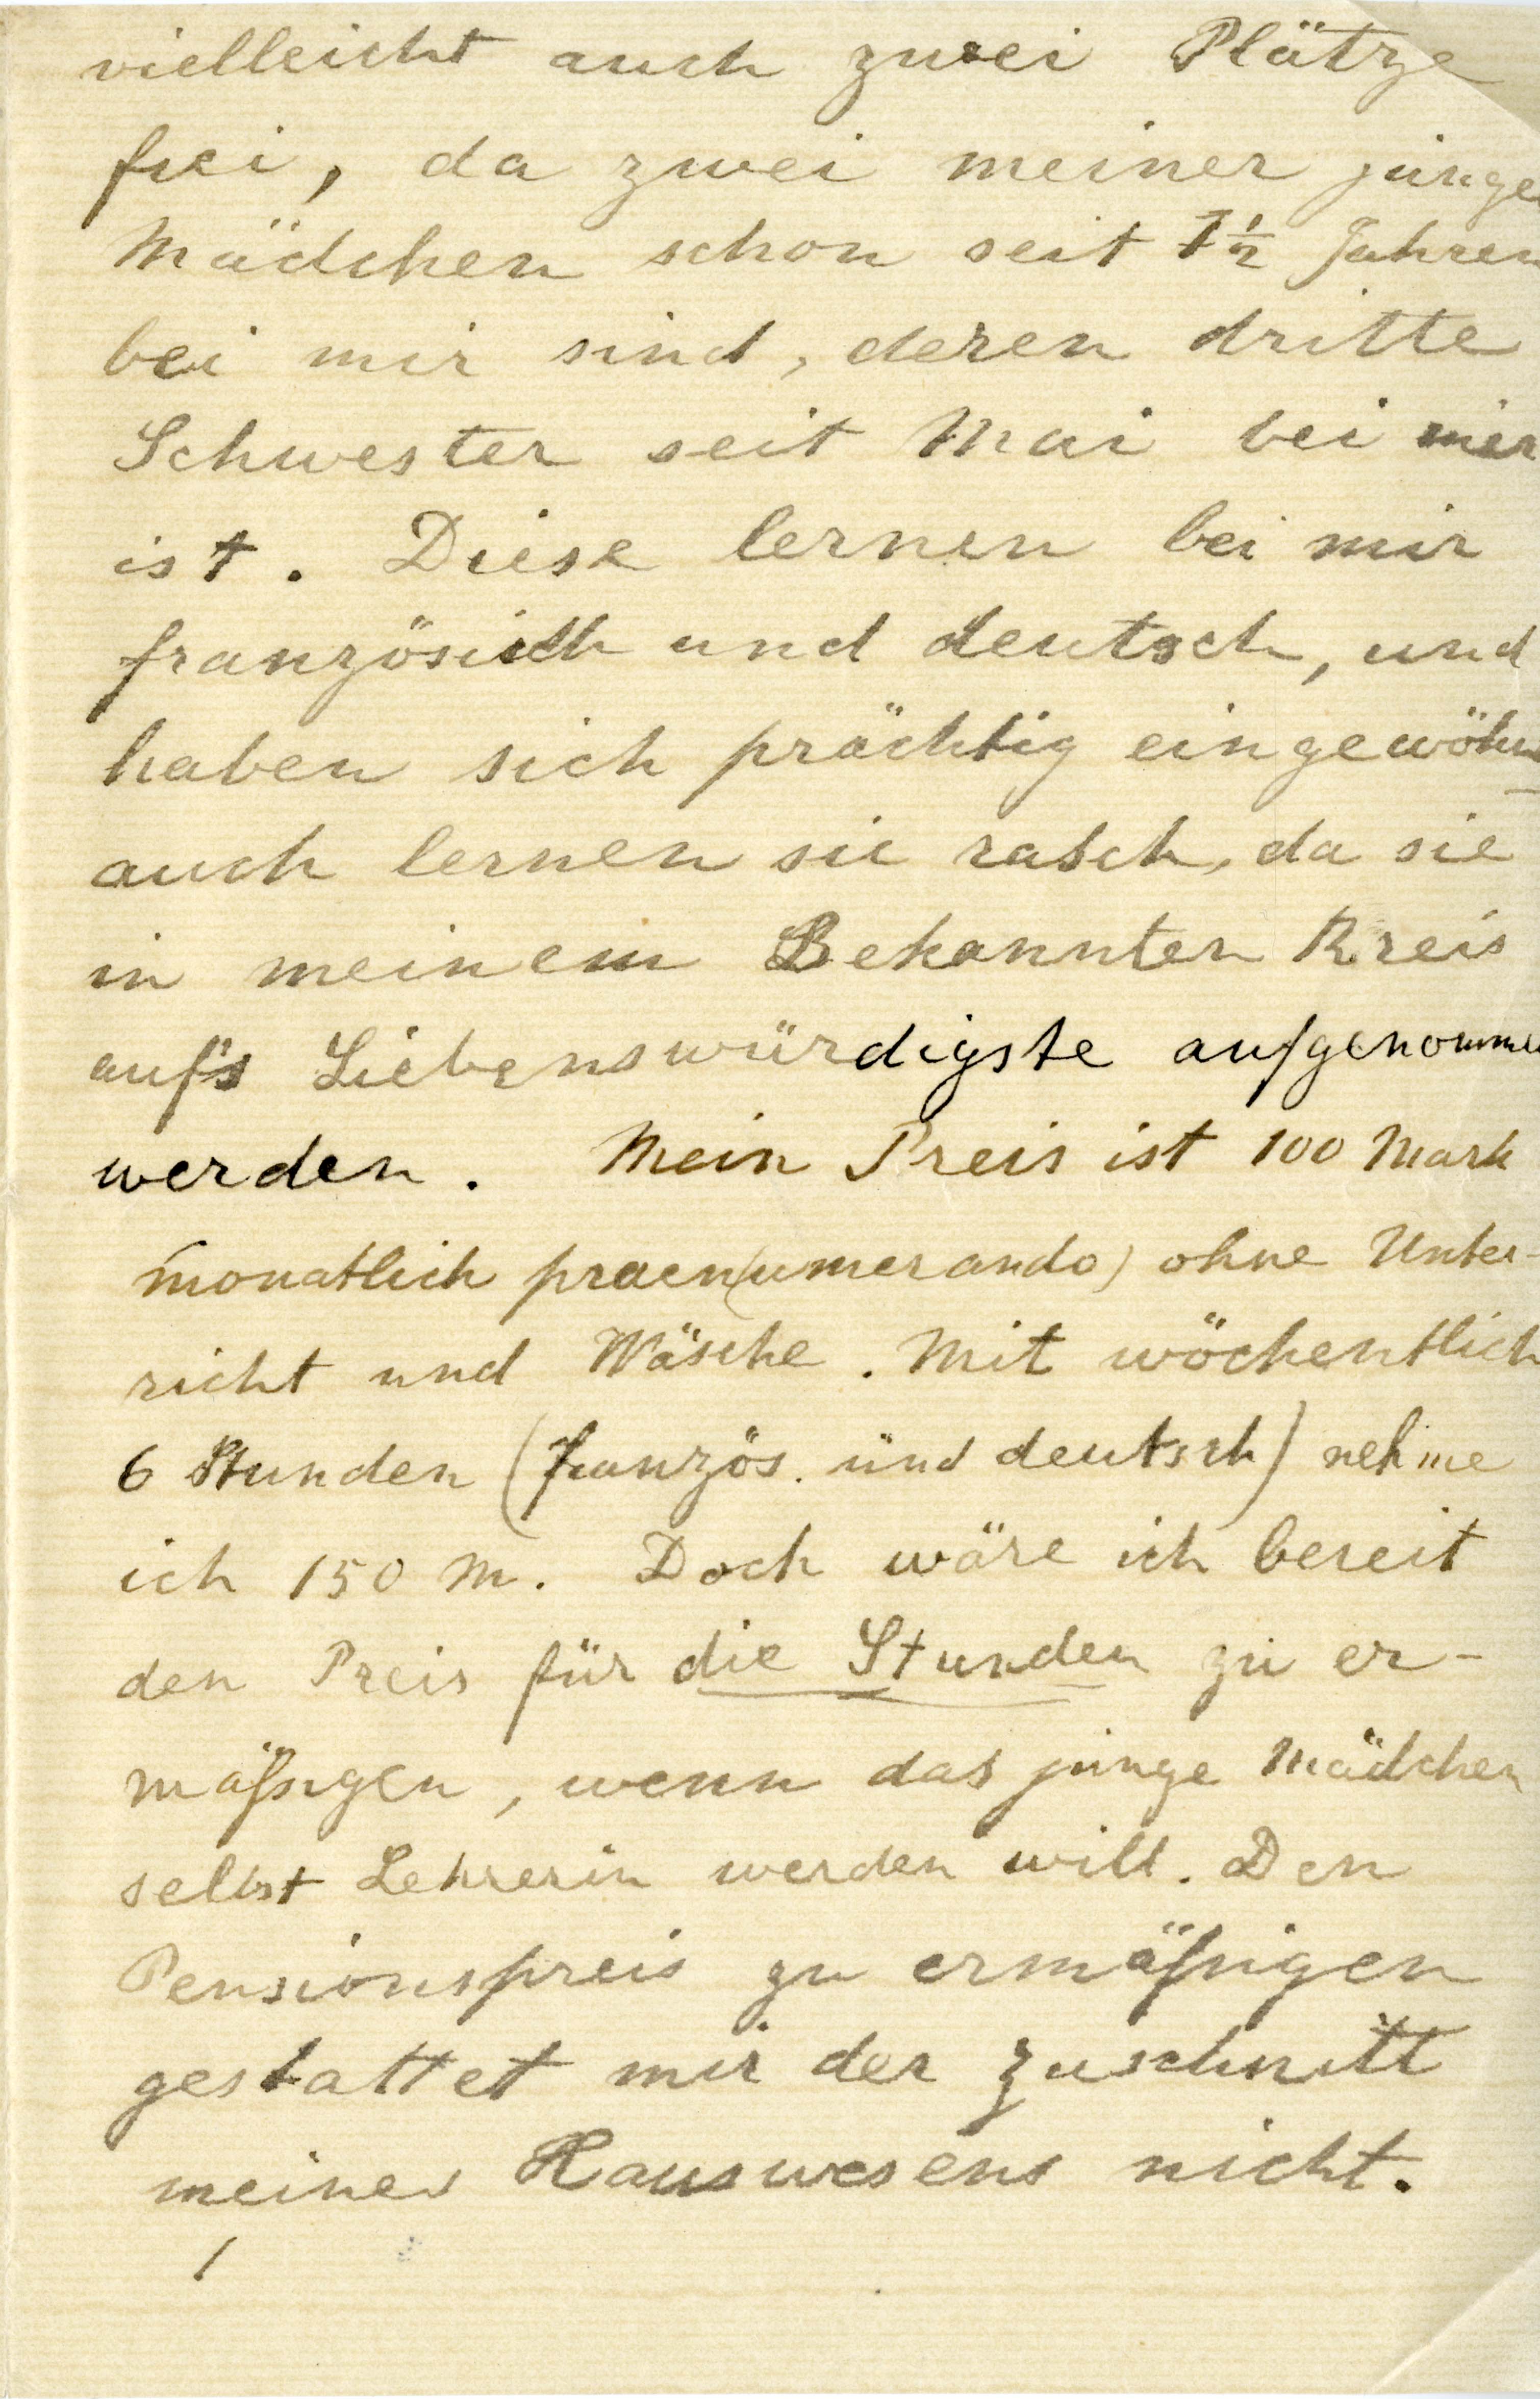 vielleicht auch zwei Plätze
frei, da zwei meiner jungen
Mädchen schon seit 1½ Jahren
bei mir sind, deren dritte
Schwester seit Mai bei mir
ist. Diese lernen bei mir
französisch und deutsch, und
haben sich prächtig eingewöhnt
auch lernen sie rasch, da sie
in meinem Bekannten Kreis
auf's Liebenswürdigste aufgenommen
werden. Mein Preis ist 100 Mark
monatlich praen(umerando) ohne Unter-
richt und Wäsche. Mit wöchentlich
6 Stunden (französ. und deutsch) nehme
ich 150 M. Doch wäre ich bereit
den Preis für die Stunden zu er-
mäßigen, wenn das junge Mädchen
selbst Lehrerin werden will. Den
Pensionspreis zu ermäßigen
gestattet mir der Zuschnitt
meines Hauswesens nicht.